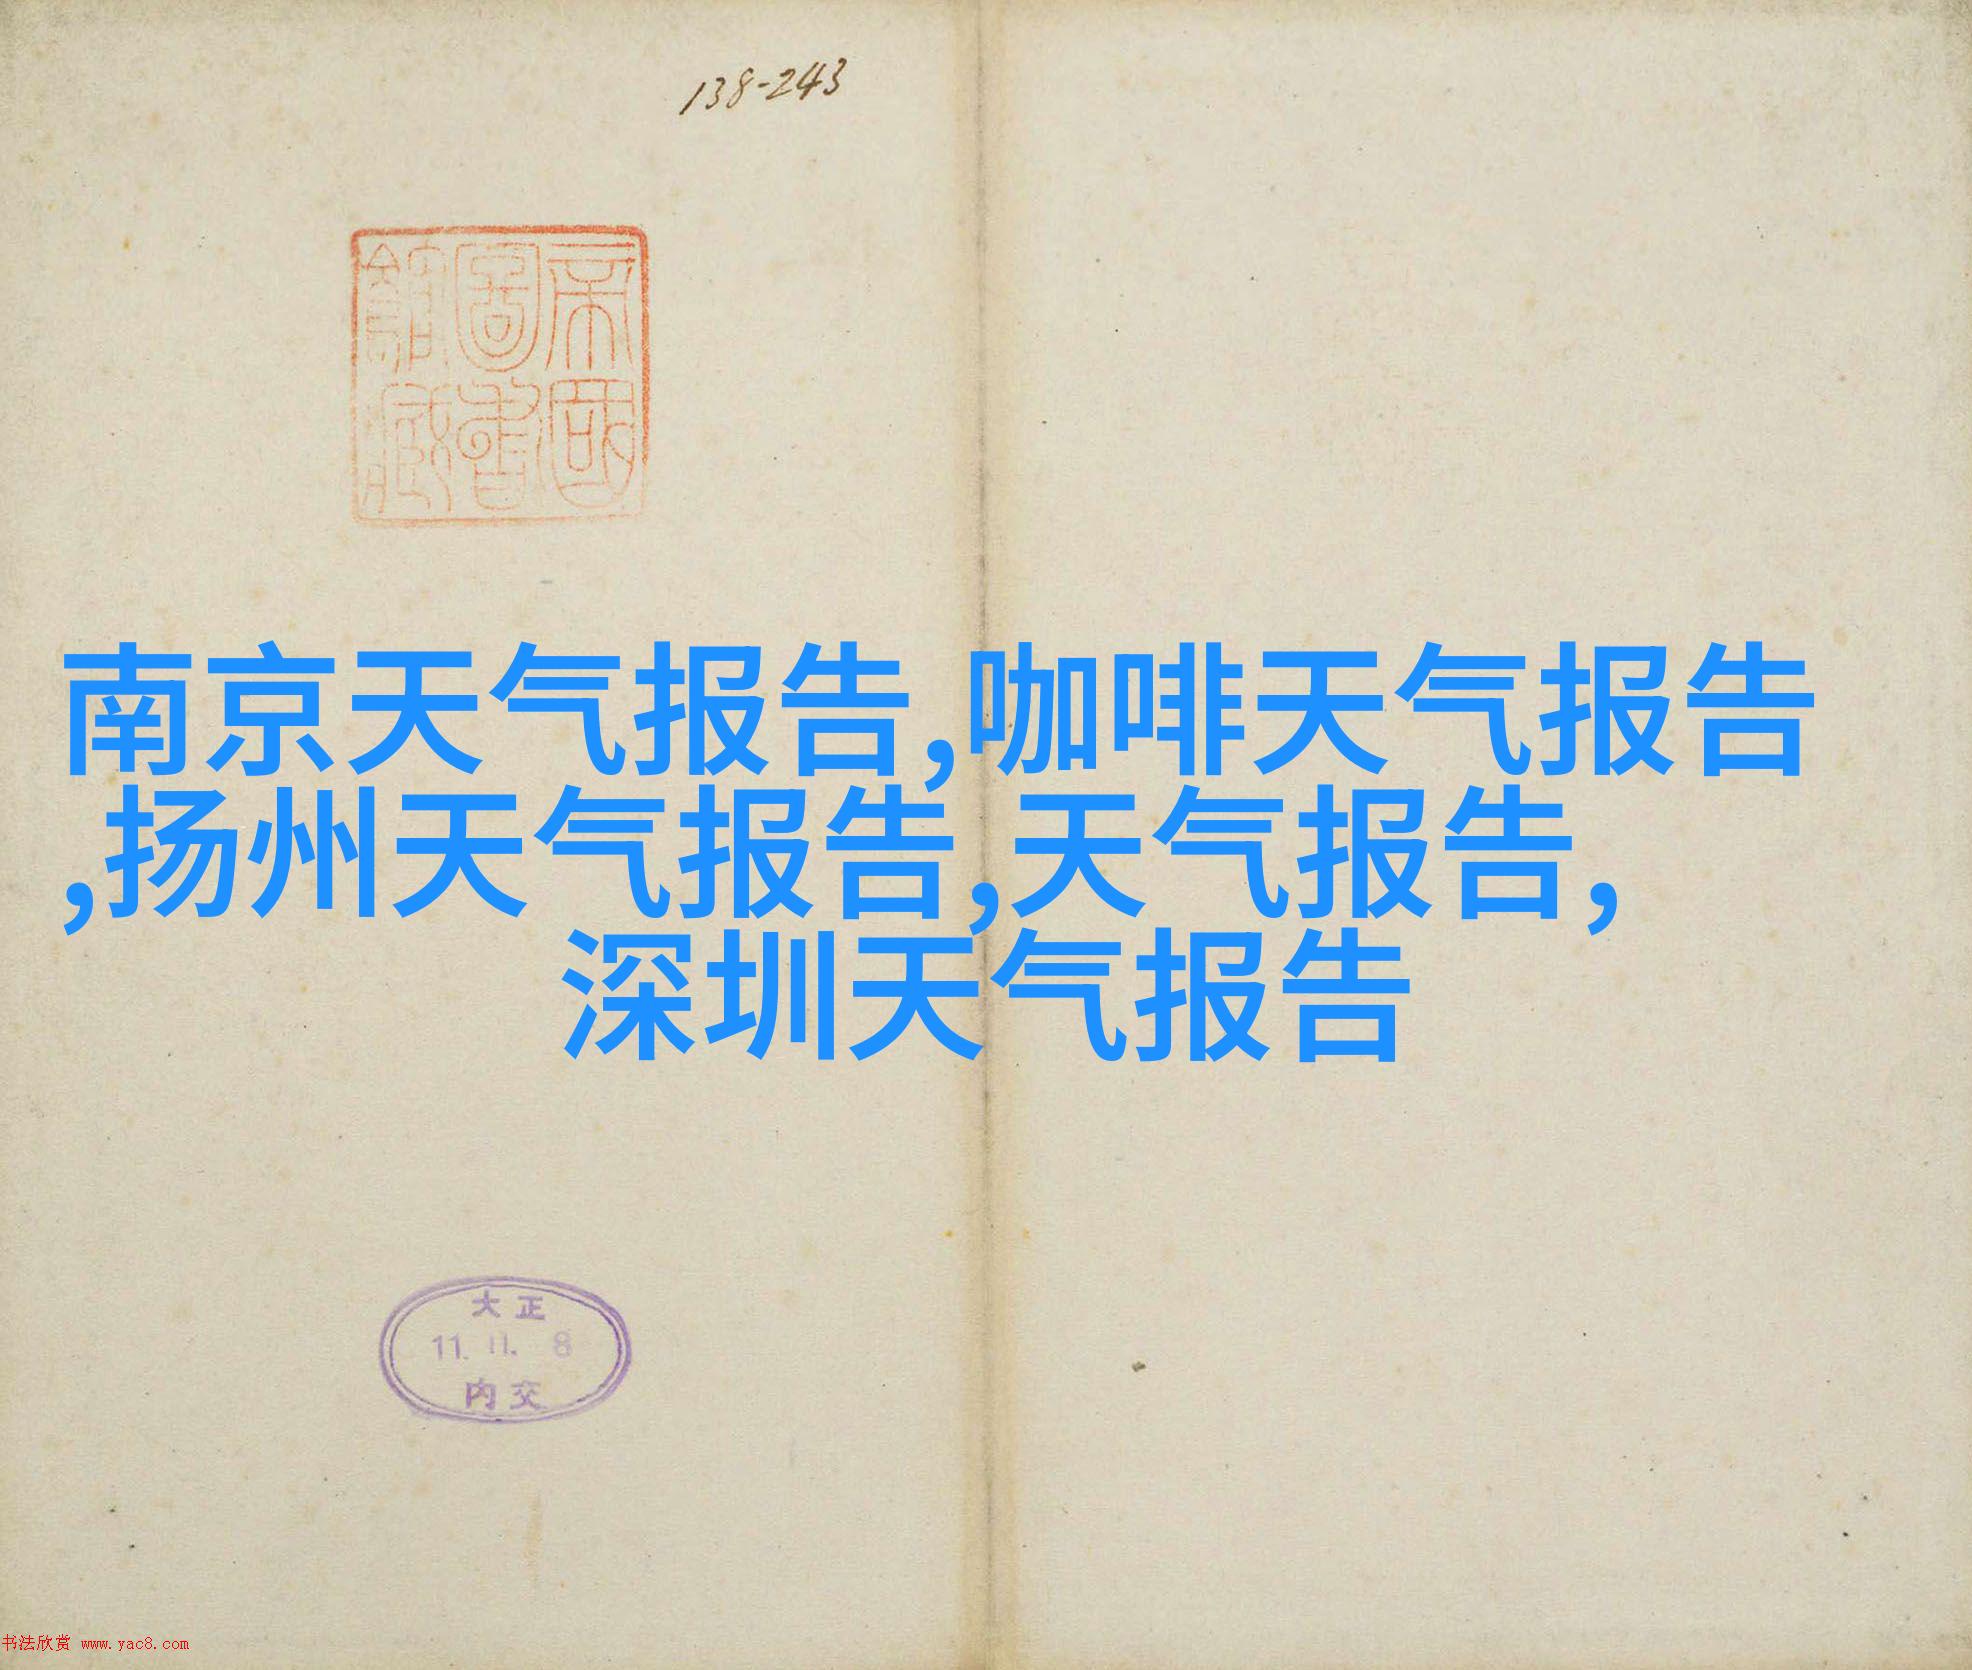 138-243
帝國
圖書
館藏
南京天气报告,咖啡天气报告
,扬州天气报告,天气报告,
深圳天气报告
大正
11. 11. 8
内交
书法欣赏 www.yac8.com